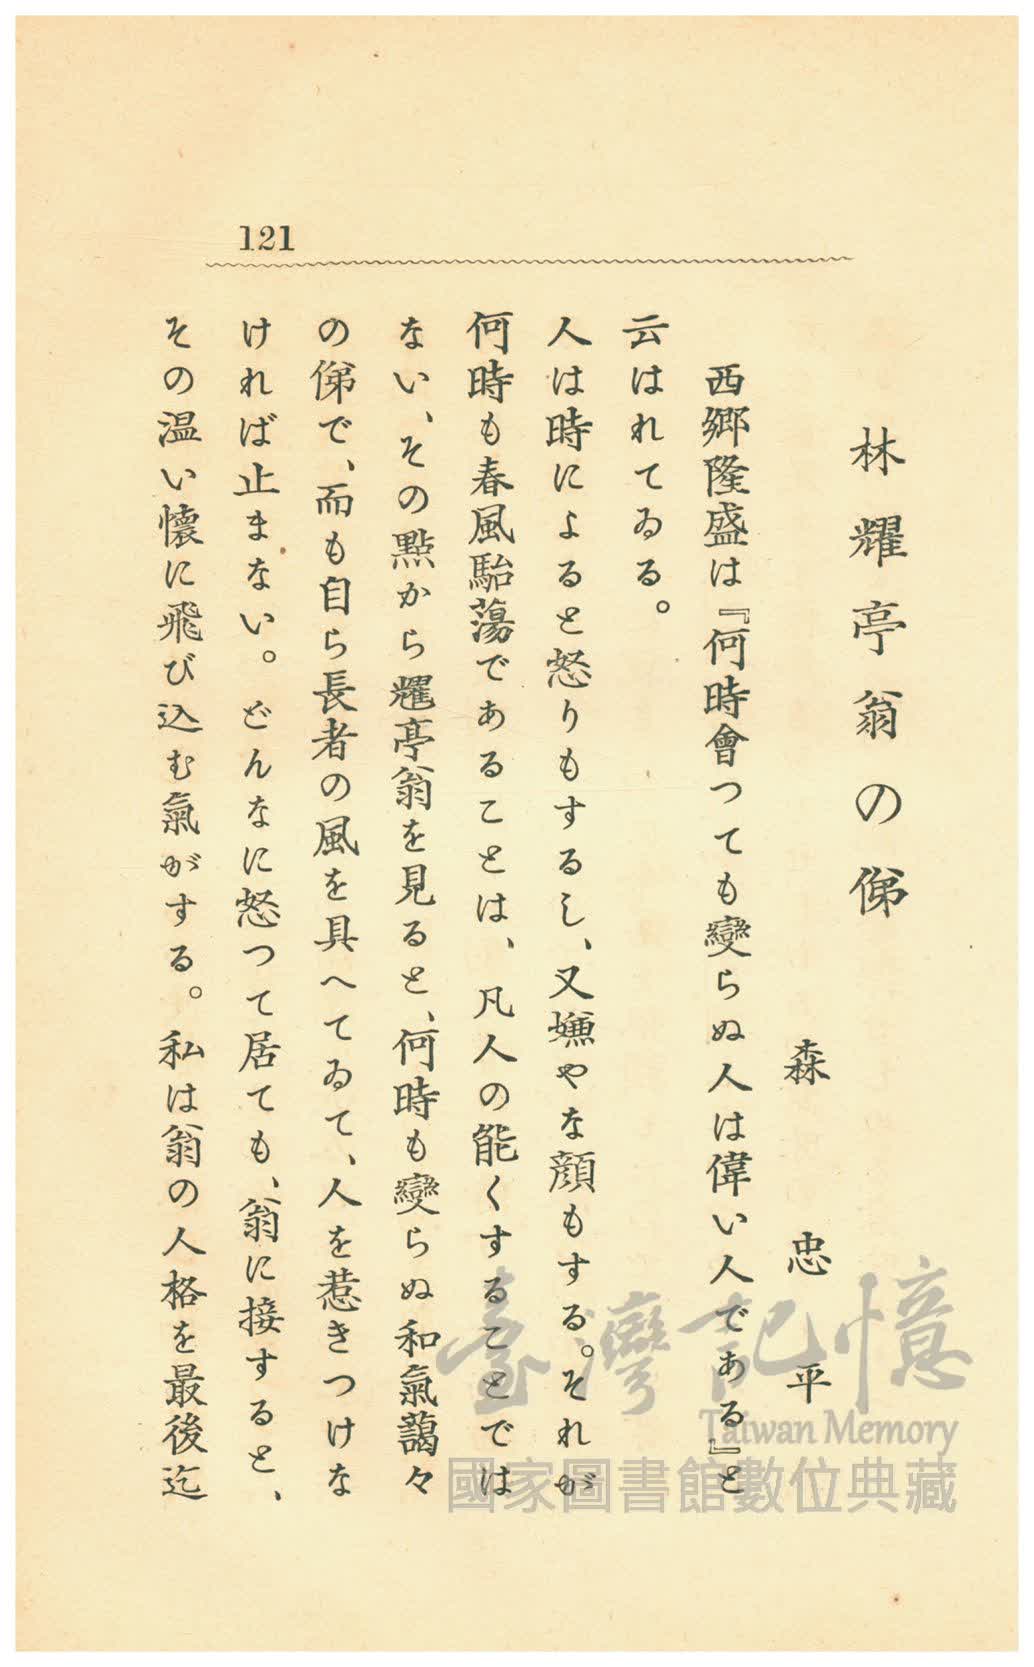 121
林耀亭翁の俤
森忠平
西鄕隆盛は『何時會つても變らぬ人は偉い人である』と
云はれてゐる。
人は時によると怒りもするし、又嫌やな顏もする。それが
何時も春風駘蕩であることは、凡人の能くすることでは
ない、その點から耀亭翁を見ると、何時も變らぬ和氣藹々
の俤で、而も自ら長者の風を具へてゐて、人を惹きつけな
ければ止まない。どんなに怒つて居ても、翁に接すると、
その温い懷に飛び込む氣がする。私は翁の人格を最後迄
臺灣記憶
Taiwan Memory
國家圖書館數位典藏